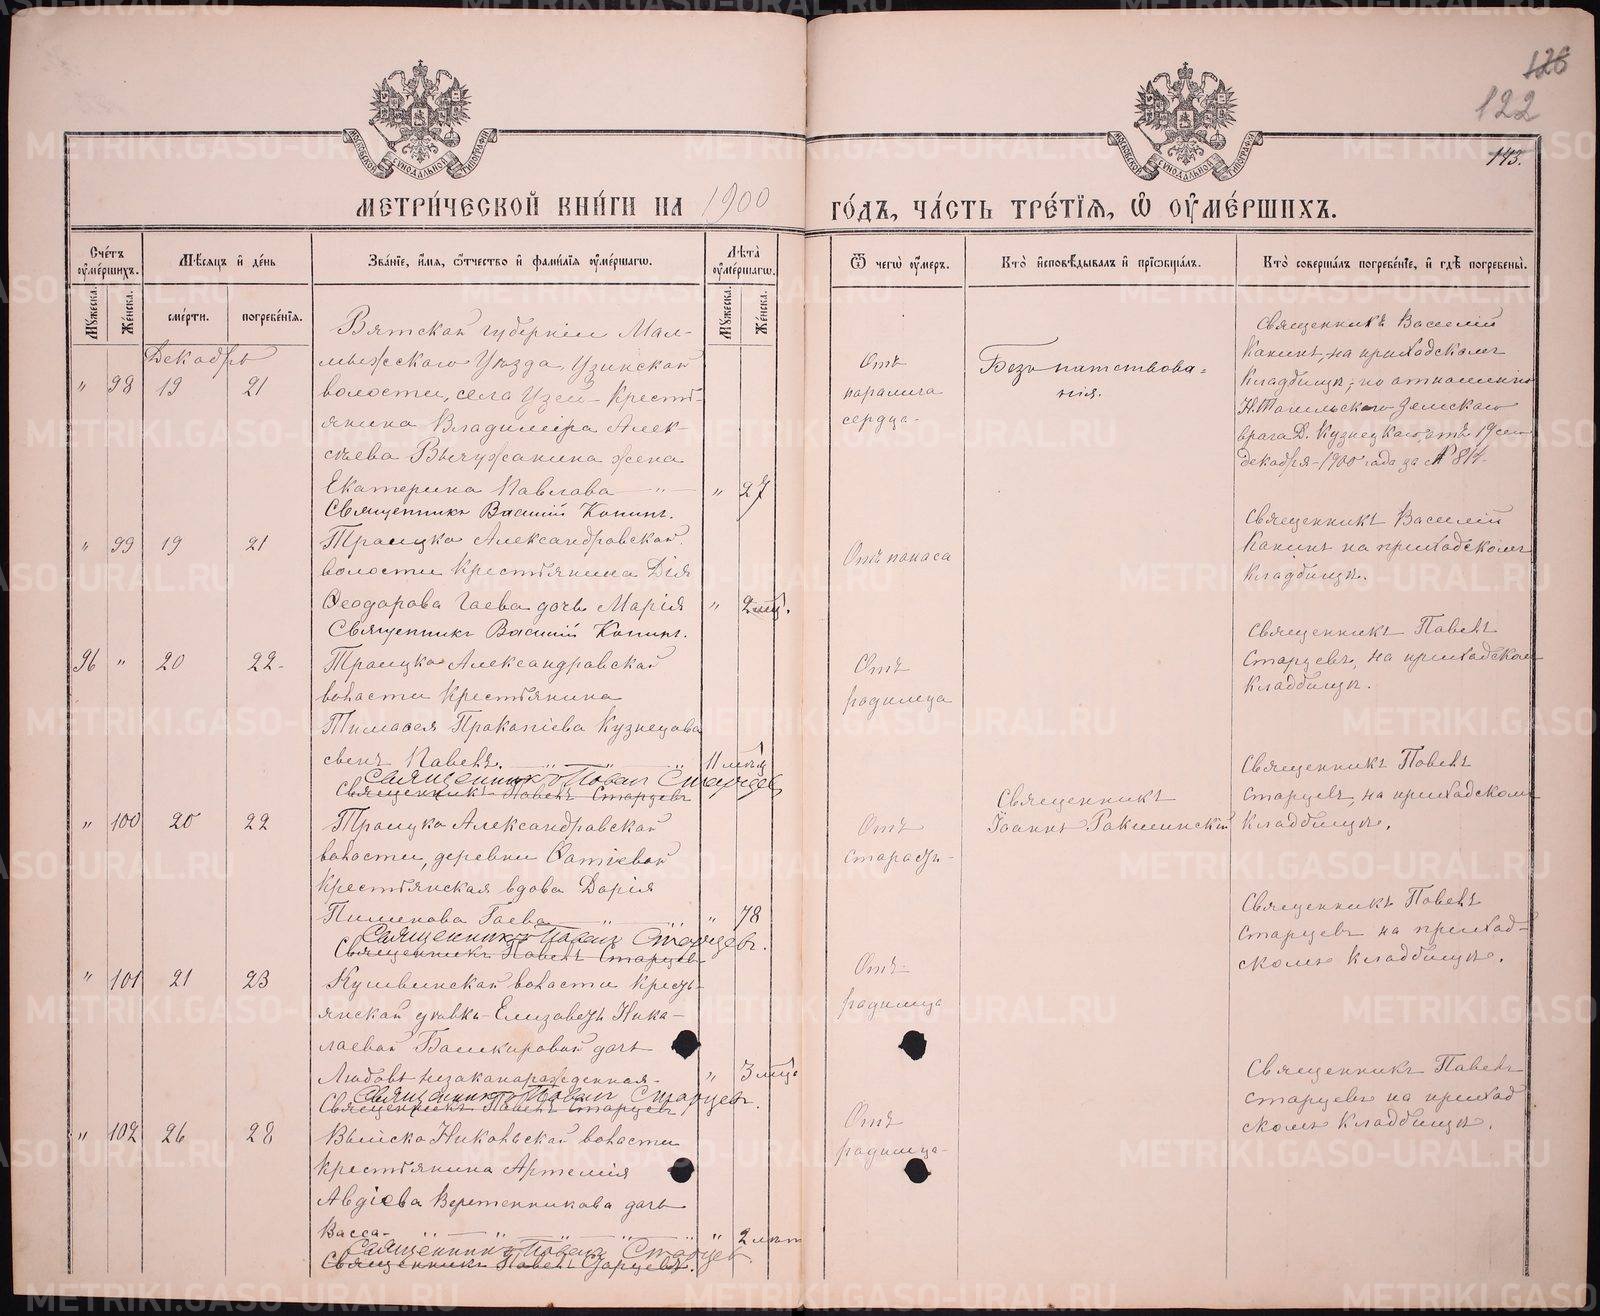 126
122
143.
МОСКОВСКОЙ СѴНОДАЛЬНОЙ ТИПОГРАФІИ
МОСКОВСКОЙ СѴНОДАЛЬНОЙ ТИПОГРАФІИ
МЕТРИ́ЧЕСКОЙ КНИ́ГИ НА 1900 ГО́ДЪ, ЧА́СТЬ ТРЕ́ТІѦ, Ѡ҆ ОУ҆МЕ́РШИХЪ.
Сче́тъ оу҆ме́ршихъ.
Мѣ́сѧцъ и҆ де́нь
Зва́ніе, и҆́мѧ, ѻ҆́тчество и҆ фами́лїѧ оу҆ме́ршагѡ.
Лѣ́та оу҆ме́ршагѡ.
Ѿ чегѡ̀ оу҆́меръ.
Кто̀ и҆сповѣ́дывалъ и҆ прїѡбща́лъ.
Кто̀ соверша́лъ погребе́нїе, и҆ гдѣ̀ погребены̀.
Му́жеска.
Же́нска.
сме́рти.
погребе́нїѧ.
Му́жеска.
Же́нска.
Декабрь
" 98 19 21
Вятской губерніи Мал-
мыжскаго Уѣзда, Узинской
волости, села Узей- Кресть-
янина Владиміра Алек-
сѣева Вычужанина жена
Екатерина Павлова " 27
Священникъ Василій Конинъ.
Отъ
паралича
сердца-
Безъ напутствова=
нія.
Священникъ Василій
Конинъ, на приходскомъ
кладбищѣ, по отношенію
Н.Тагильскаго земскаго
врача Д. Кузнецкаго, отъ 19 сего
декабря-1900 года за №
" 99 19 21
Троицко Александровской
волости крестьянина Дія
Ѳеодорова Гаева дочь Марія " 2 мѣс.
Священникъ Василій Конинъ.
Отъ поноса
Священникъ Василій
Конинъ на приходскомъ
кладбищѣ.
96 " 20 22-
Троицко Александровской
волости крестьянина
Тимоѳея Прокопіева Кузнецова
сынъ Павелъ. 11 мѣсц
Священникъ Павелъ Старцевъ
Священникъ Павелъ Старцевъ
Отъ
родимца
Священникъ Павелъ
Старцевъ, на приходском
кладбищѣ.
" 100 20 22
Троицко Александровской
волости, деревни Фотѣевой
крестьянская вдова Дарія
Пименова Гаева " 78
Священникъ Павелъ Старцевъ.
Священникъ Павелъ Старцевъ
Отъ
старости-
Священникъ
Іоаннъ
Священникъ Павелъ
Старцевъ, на приходскомъ
кладбищѣ.
" 101 21 23
Кушвинской волости кресть-
янской дѣвки Елизаветы Нико-
лаевой Башкировой дочь
Любовь незаконорожденная- " 3 мѣс
Священникъ Павелъ Старцевъ.
Священникъ Павелъ Старцевъ
Отъ
родимца
Священникъ Павелъ
Старцевъ на приход-
скомъ кладбищѣ.
" 102 26 28
Выйско Никольской волости
крестьянина Артемія
Авдіева Веретенникова дочь
Васса- " 2 лѣт
Священникъ Павелъ Старцев
Священникъ Павелъ Старцевъ.
Отъ
родимца-
Священникъ Павелъ
Старцевъ на приход
скомъ кладбищѣ.
METRIKI.GASO-URAL.RU